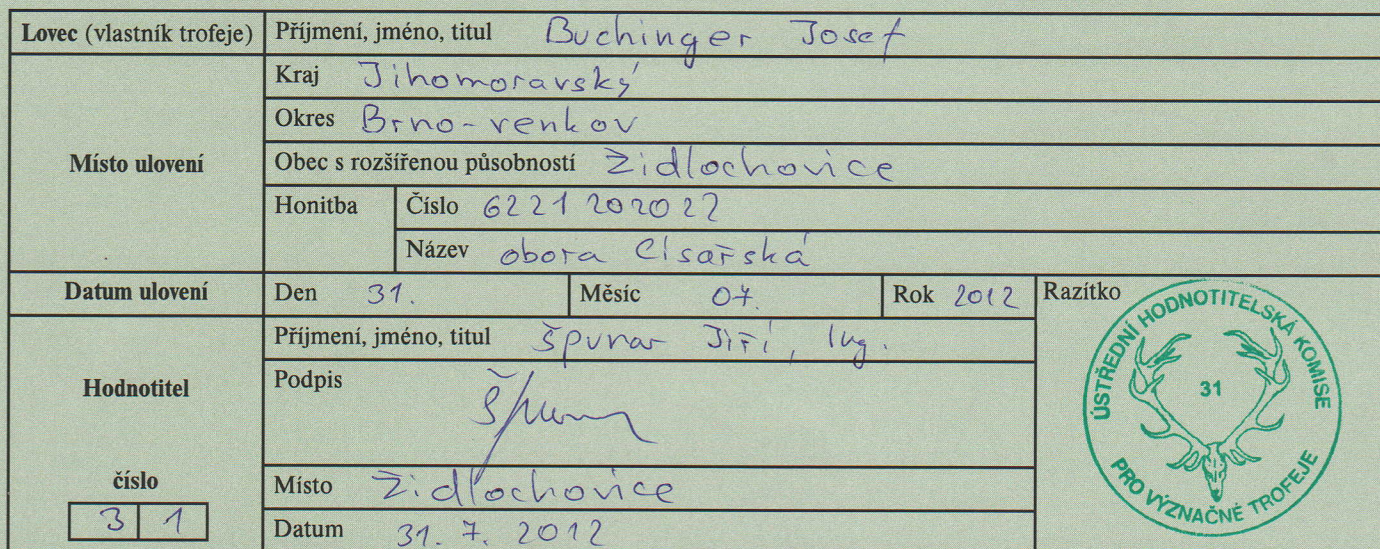 Lovec (vlastník trofeje) Příjmení, jméno, titul Buchinger Josef
Kraj Jihomoravský
Okres Brno-venkov
Místo ulovení Obec s rozšířenou působností Židlochovice
Honitba Číslo 6221202022
Název obora Císařská
Datum ulovení Den 31. Měsíc 07. Rok 2012 Razítko
Příjmení, jméno, titul Špunar Jiří, Ing.
Hodnotitel Podpis
číslo Místo Židlochovice
31 Datum 31. 7. 2012
ÚSTŘEDNÍ HODNOTITELSKÁ KOMISE
31
PRO VÝZNAČNÉ TROFEJE